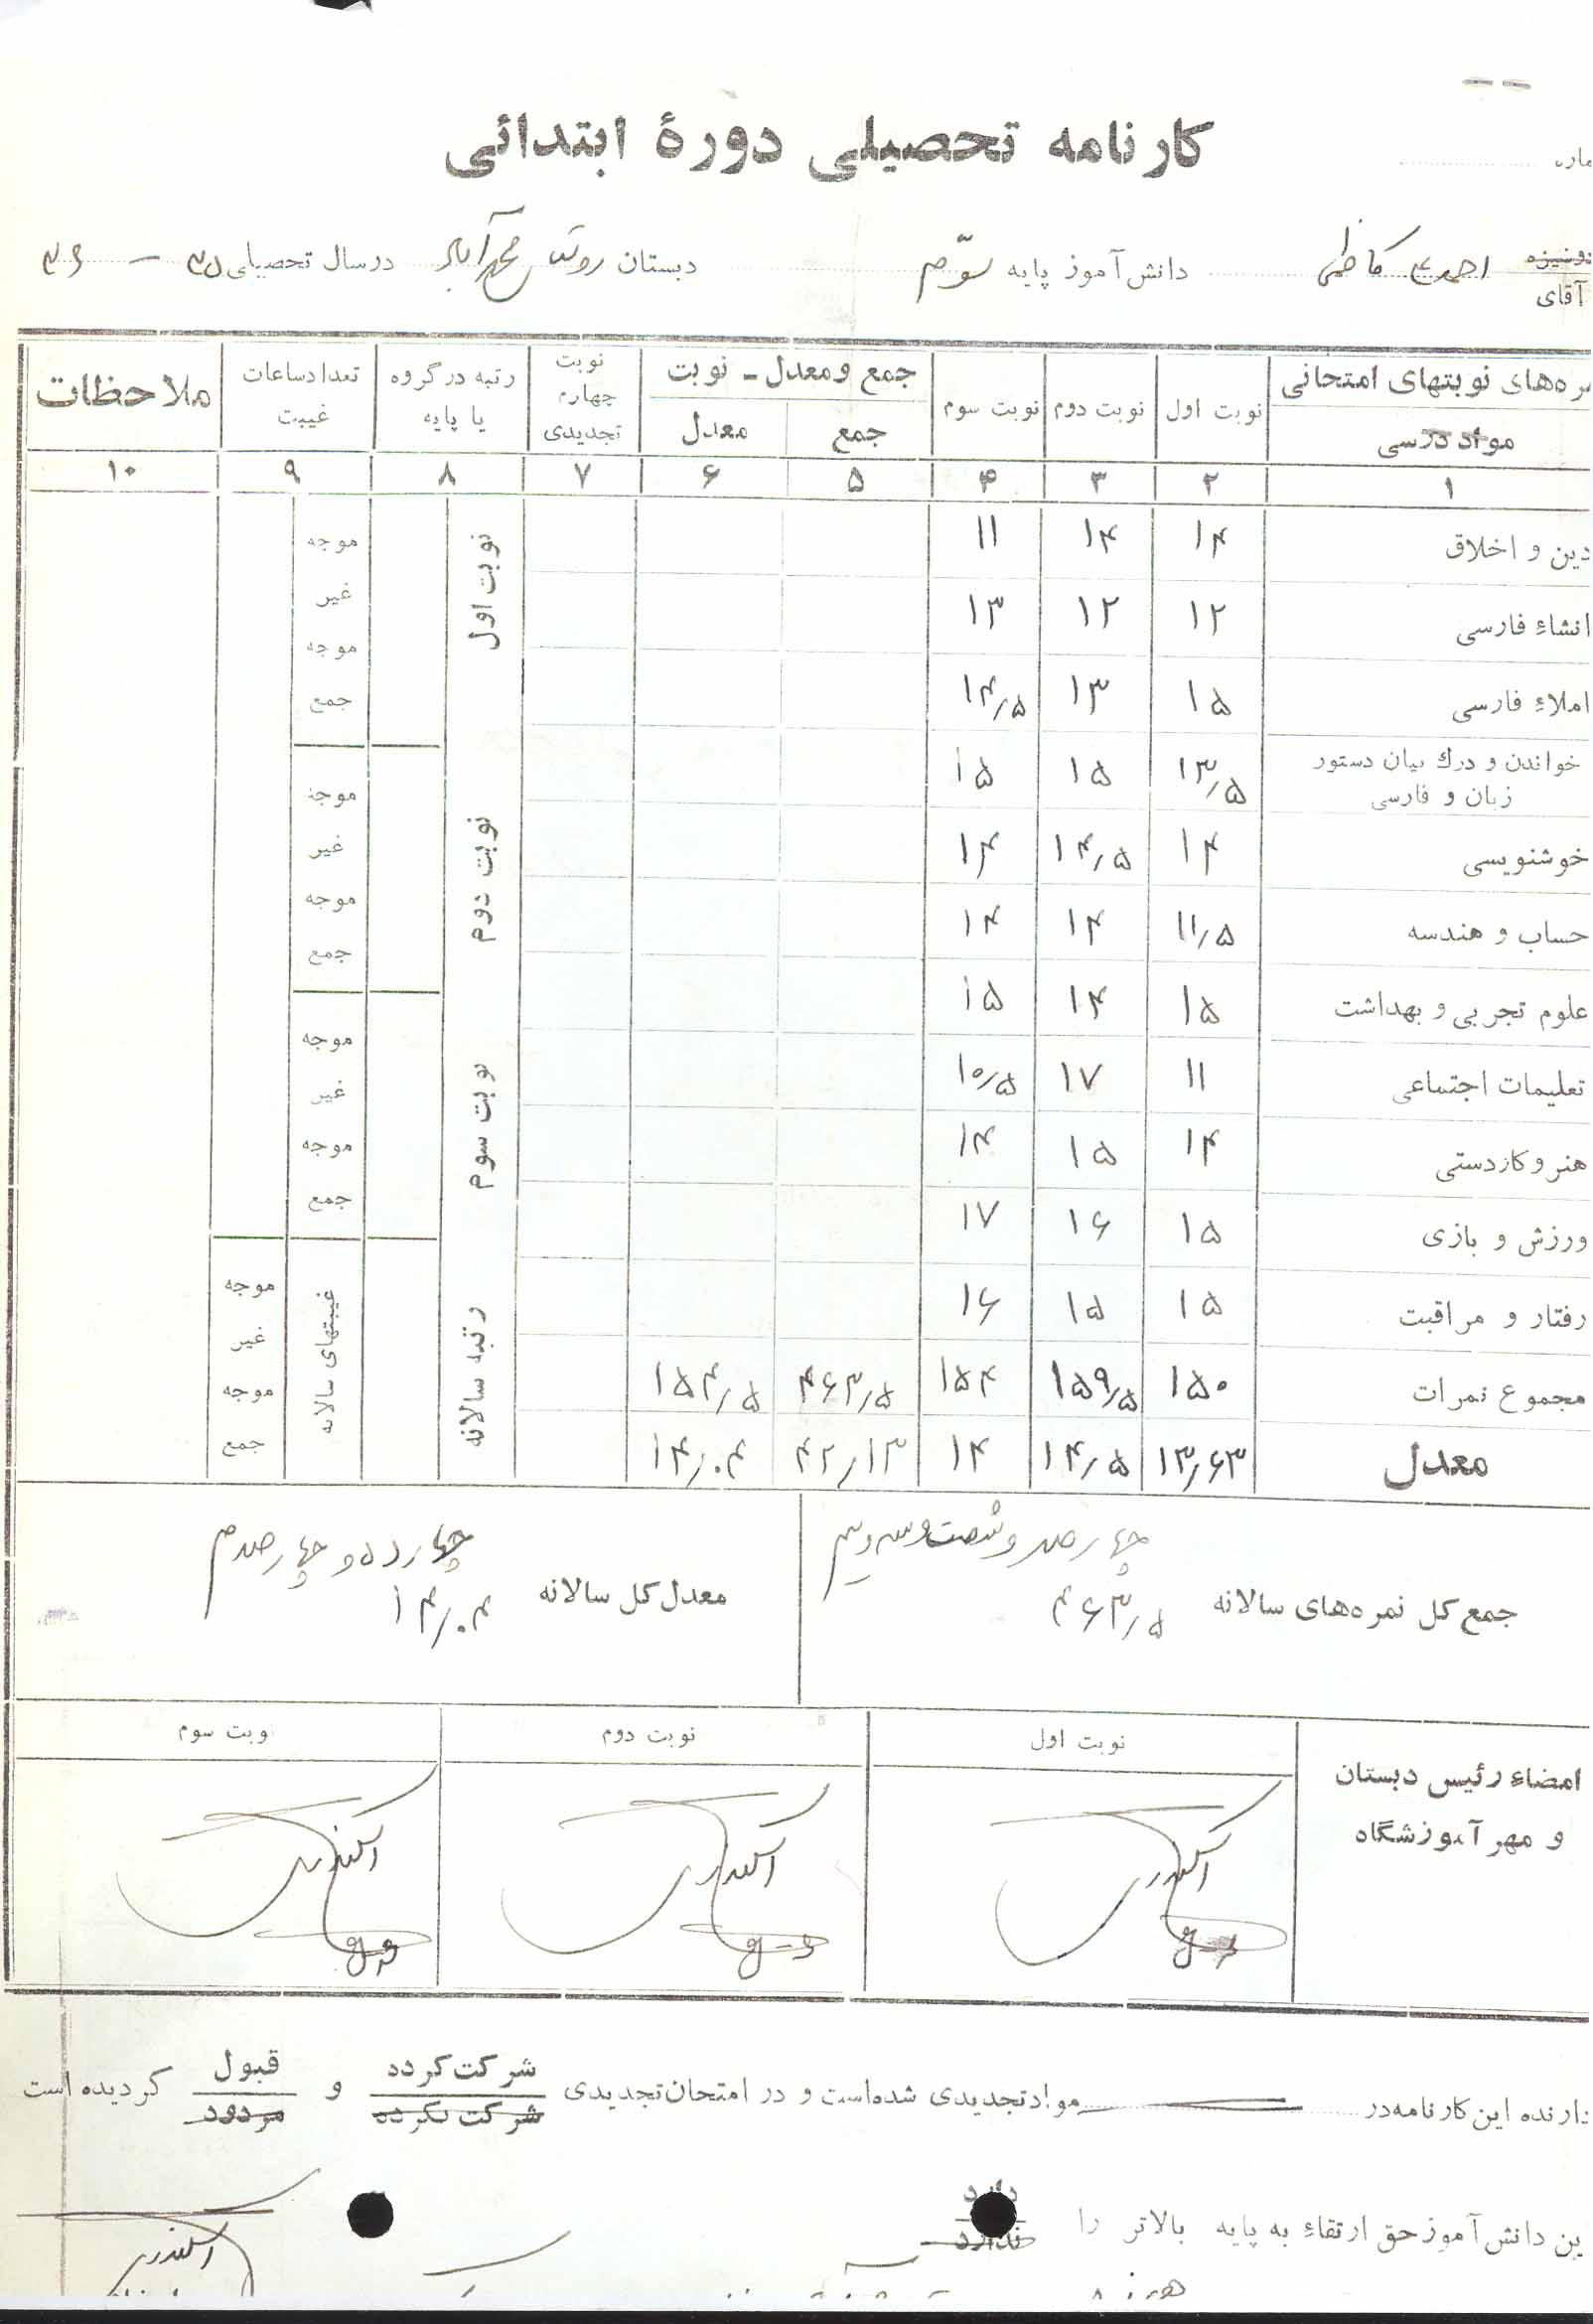 کارنامه تحصیلی دورهٔ ابتدائی
ماره
دوشیزه
آقای احمد کاظمی دانش‌آموز پایه سوّم دبستان روستای محمدآباد در سال تحصیلی ۳۵ — ۳۶
ره‌های نوبتهای امتحانی
مواد درسی
نوبت اول
نوبت دوم
نوبت سوم
جمع و معدل - نوبت
جمع
معدل
نوبت چهارم تجدیدی
رتبه در گروه یا پایه
تعداد ساعات غیبت
ملاحظات
۱ ۲ ۳ ۴ ۵ ۶ ۷ ۸ ۹ ۱۰
دین و اخلاق ۱۴ ۱۴ ۱۱
انشاءِ فارسی ۱۲ ۱۲ ۱۳
املاءِ فارسی ۱۵ ۱۳ ۱۴/۵
خواندن و درك بیان دستور زبان و فارسی ۱۳/۵ ۱۵ ۱۵
خوشنویسی ۱۴ ۱۴/۵ ۱۴
حساب و هندسه ۱۱/۵ ۱۴ ۱۴
علوم تجربی و بهداشت ۱۵ ۱۴ ۱۵
تعلیمات اجتماعی ۱۱ ۱۷ ۱۰/۵
هنر و کاردستی ۱۴ ۱۵ ۱۴
ورزش و بازی ۱۵ ۱۶ ۱۷
رفتار و مراقبت ۱۵ ۱۵ ۱۶
مجموع نمرات ۱۵۰ ۱۵۹/۵ ۱۵۴ ۴۶۳/۵ ۱۵۴/۵
معدل ۱۳/۶۳ ۱۴/۵ ۱۴ ۴۲/۱۳ ۱۴/۰۴
نوبت اول
موجه
غیر
موجه
جمع
نوبت دوم
موجه
غیر
موجه
جمع
نوبت سوم
موجه
غیر
موجه
جمع
رتبه سالانه
غیبتهای سالانه
موجه
غیر
موجه
جمع
چهارصد و شصت و سه و نیم
جمع کل نمره‌های سالانه ۴۶۳/۵
چهارده و چهار صدم
معدل کل سالانه ۱۴/۰۴
امضاء رئیس دبستان
و مهر آموزشگاه
نوبت اول
نوبت دوم
نوبت سوم
اسکندری
اسکندری
اسکندری
دارنده این کارنامه در مواد تجدیدی شده‌است و در امتحان تجدیدی شرکت کرده شرکت نکرده و قبول مردود گردیده است
ین دانش‌آموز حق ارتقاءِ به پایه بالاتر را دارد ندارد
اسکندری